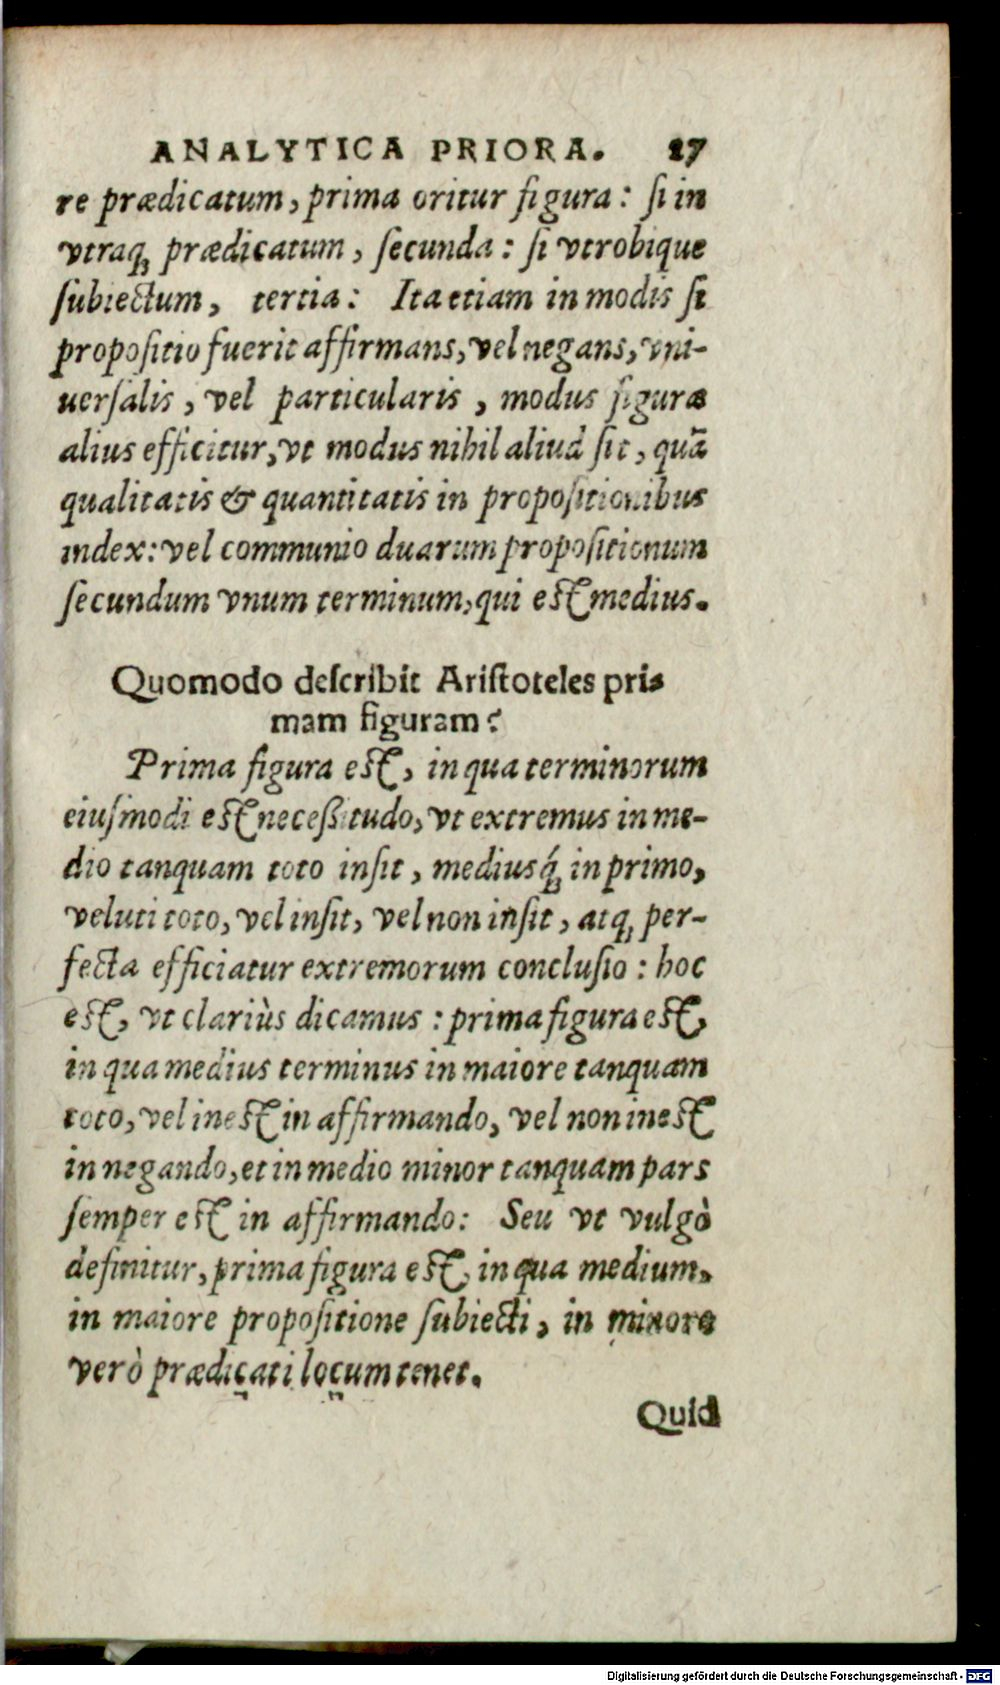 ANALYTICA PRIORA. 27
re prædicatum, prima oritur figura: si in
vtraq; prædicatum, secunda: si vtrobique
subiectum, tertia: Ita etiam in modis si
propositio fuerit affirmans, vel negans, vni-
uersalis, vel particularis, modus figuræ
alius efficitur, vt modus nihil aliud sit, quã
qualitatis & quantitatis in propositionibus
index: vel communio duarum propositionum
secundum vnum terminum, qui est medius.
Quomodo describit Aristoteles pri-
mam figuram?
Prima figura est, in qua terminorum
eiusmodi est necessitudo, vt extremus in me-
dio tanquam toto insit, mediusq́; in primo,
veluti toto, vel insit, vel non insit, atq; per-
fecta efficiatur extremorum conclusio: hoc
est, vt clariùs dicamus: prima figura est,
in qua medius terminus in maiore tanquam
toto, vel inest in affirmando, vel non inest
in negando, et in medio minor tanquam pars
semper est in affirmando: Seu vt vulgò
definitur, prima figura est, in qua medium,
in maiore propositione subiecti, in minore
verò prædicati locum tenet.
Quid
Digitalisierung gefördert durch die Deutsche Forschungsgemeinschaft - DFG